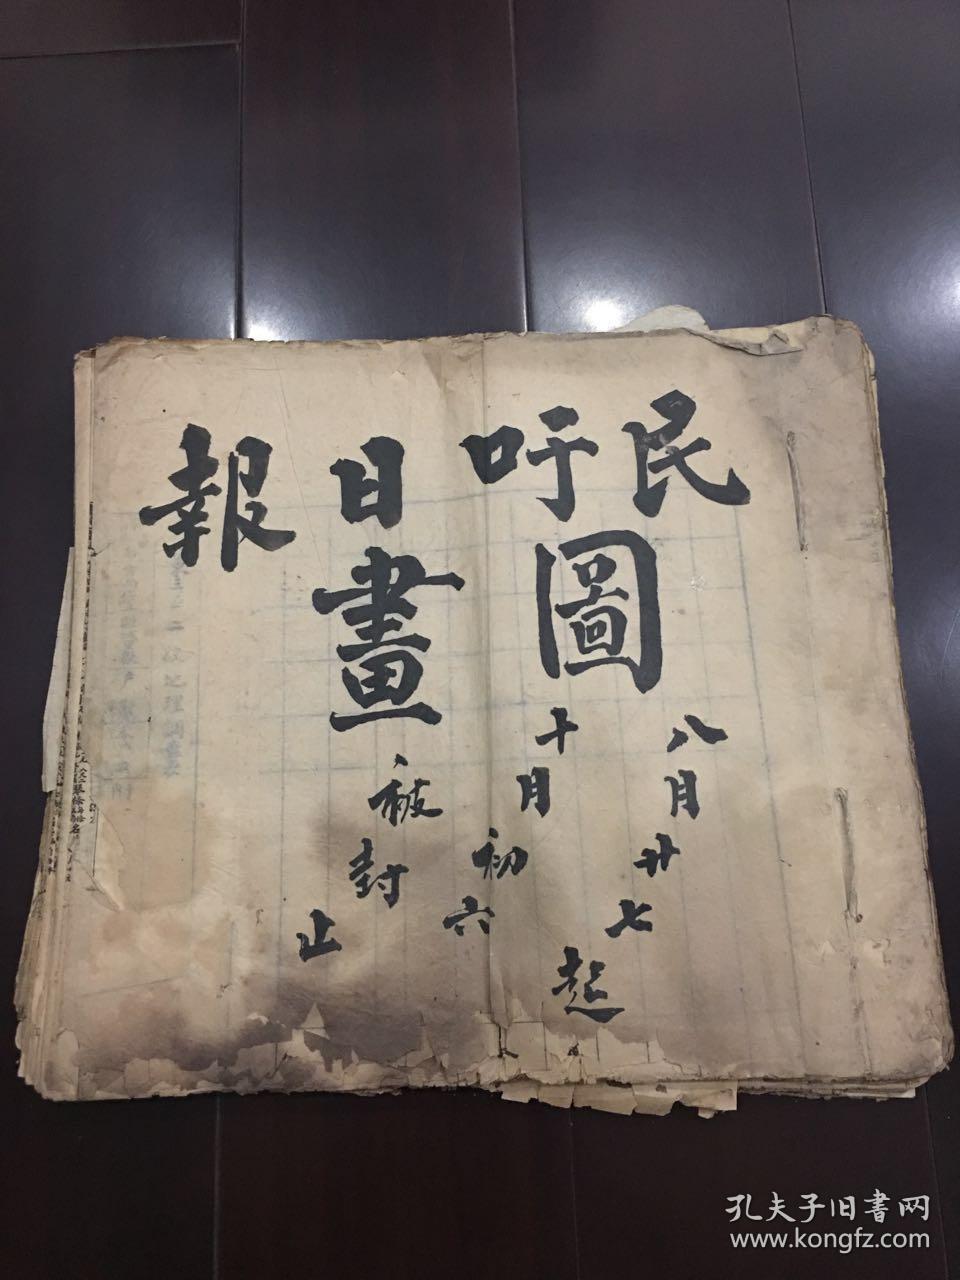 民吁日報
圖畫
八月廿七起
十月初六
被封止
孔夫子旧書网
www.kongfz.com